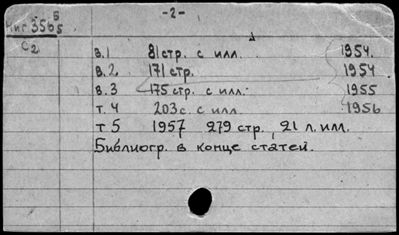 -2-
Б
Чиг 3565
C2
в.1 81 стр. с илл. 1954.
в.2 171 стр. 1954
в.3 175 стр. с илл. 1955
т.4 203 с. с илл. 1956
т 5 1957 279 стр., 21 л. илл.
Библиогр. в конце статей.